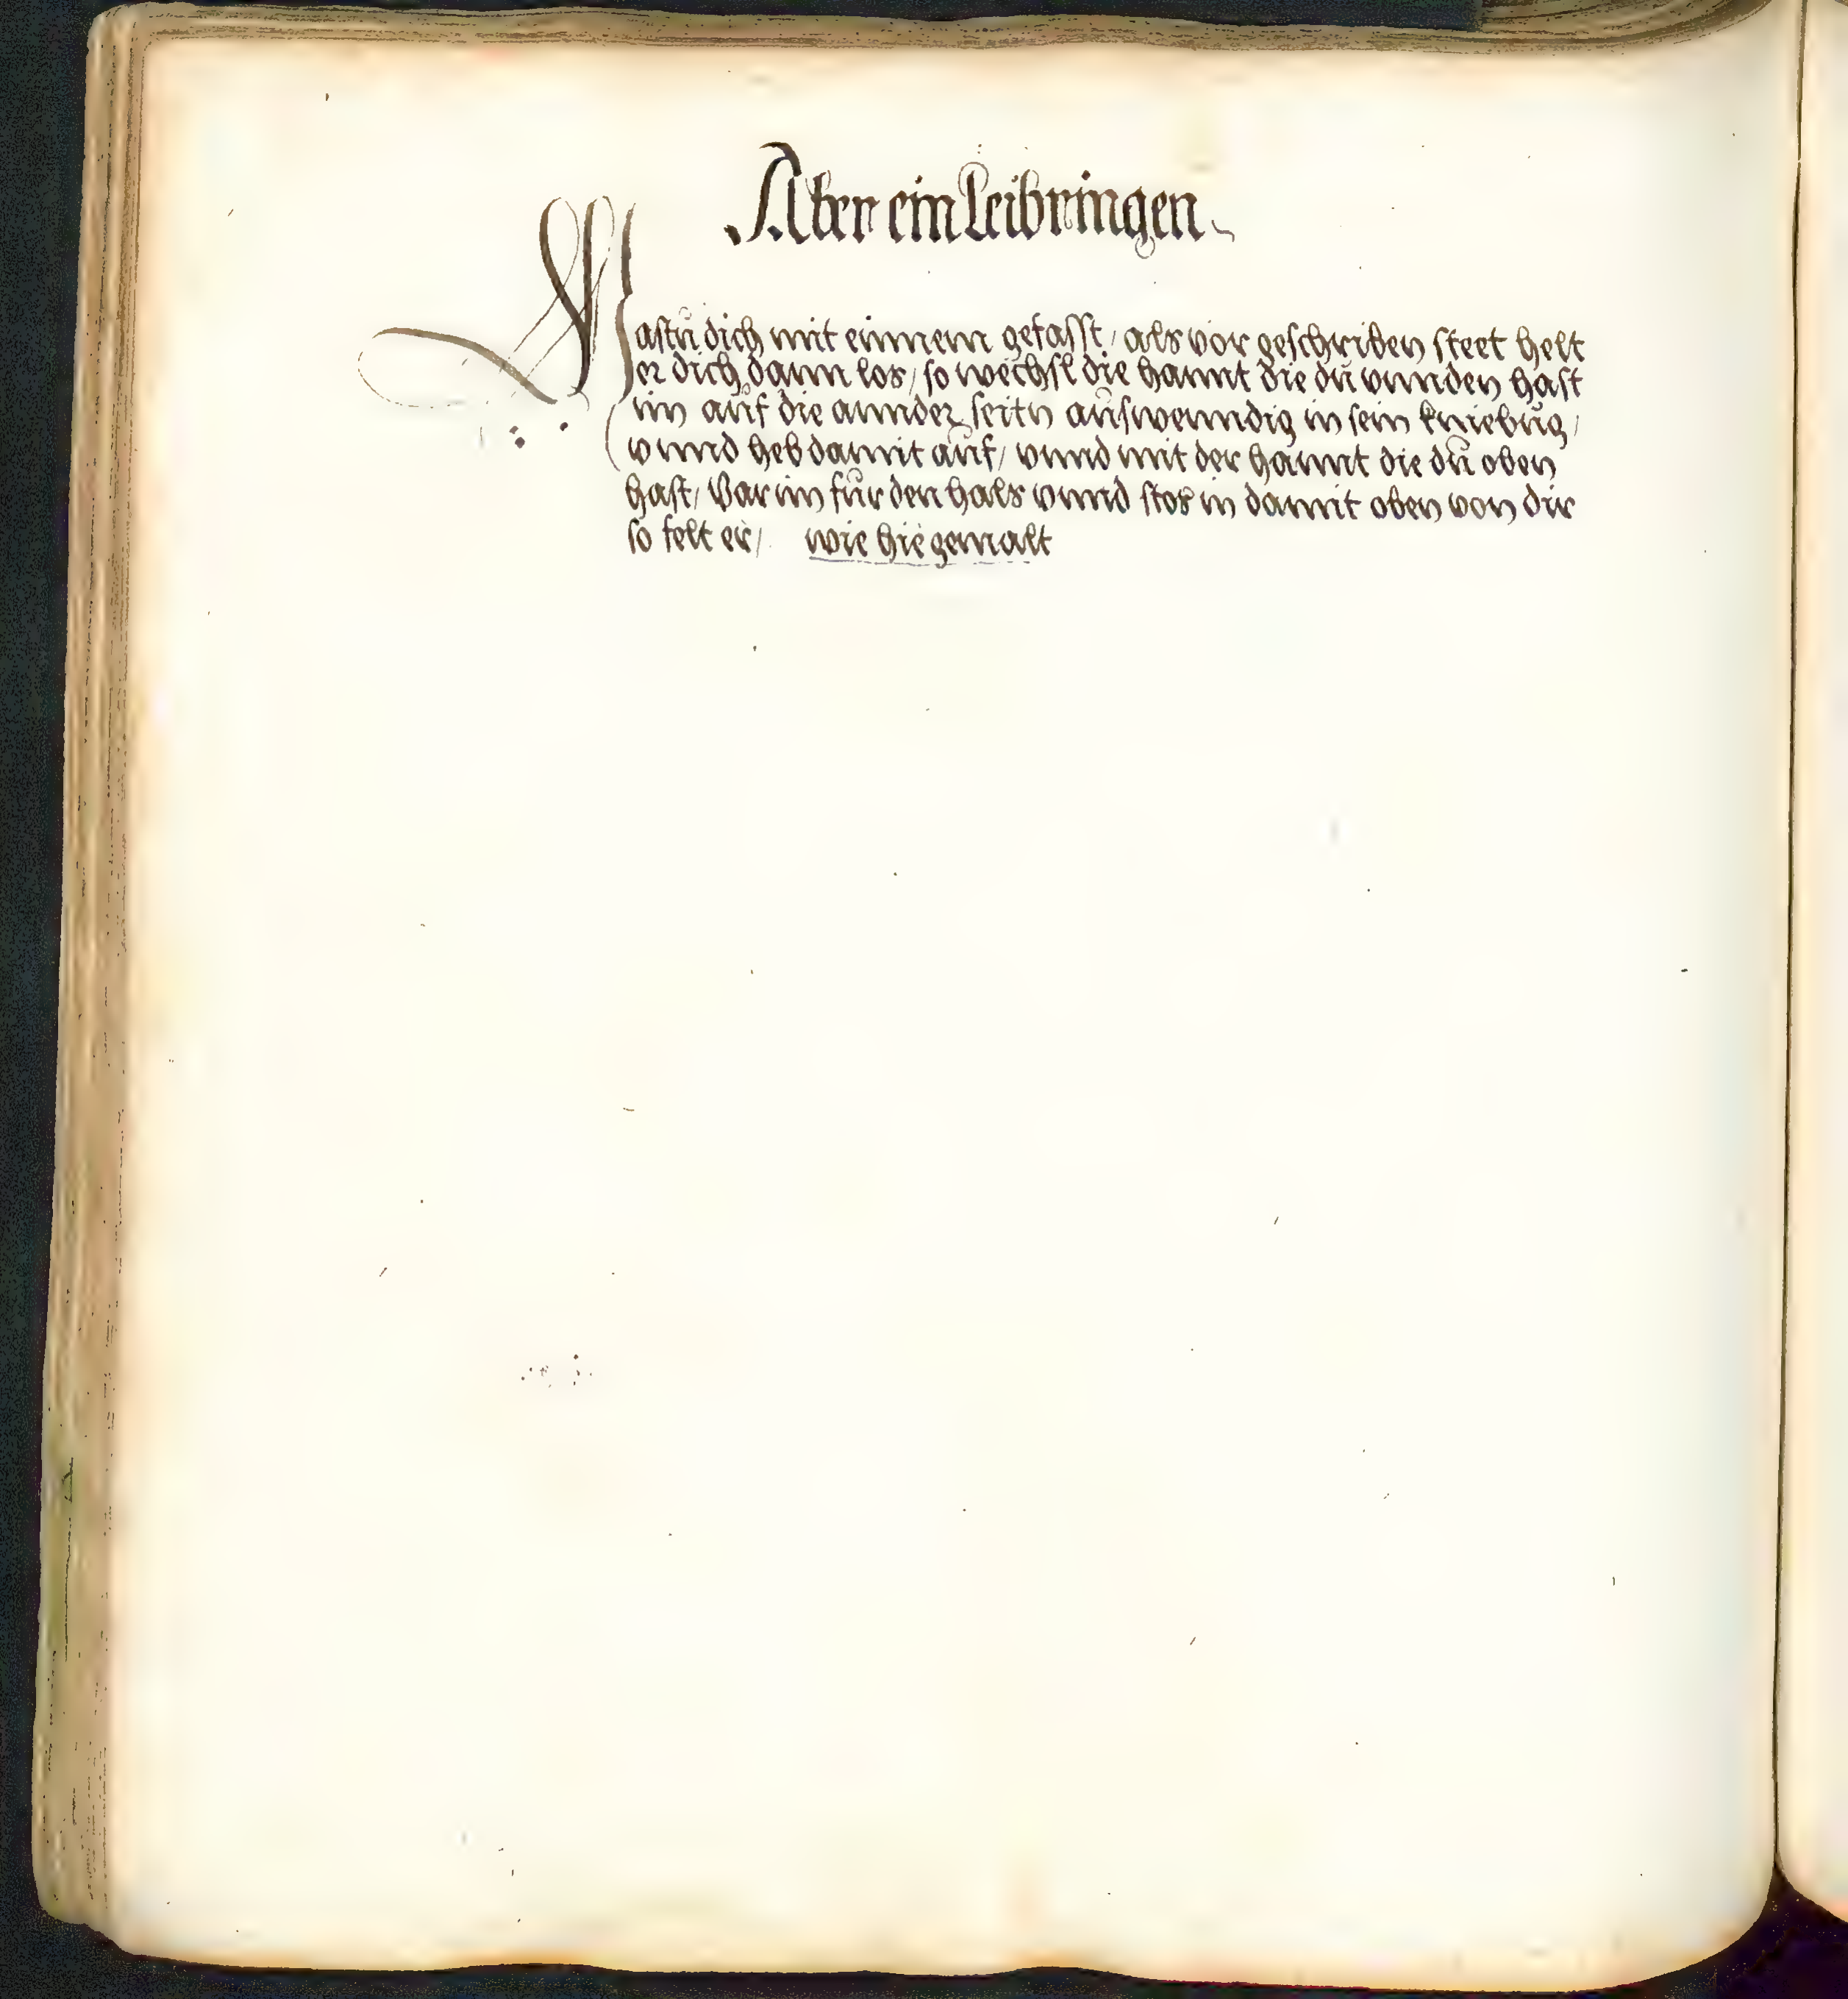 Aber ein Leibringen
Hastu dich mit einnem gefasst / als vor geschriben steet helt
er dich dann los / so wechsl die hannt die du vnnden hast
im auf die annder seitn auswenndig in sein kniebug /
vnnd heb damit auf / vnnd mit der hannt die du oben
hast / Var im fur den hals vnnd stos in damit oben von dir
so felt er / wie hie gemalt